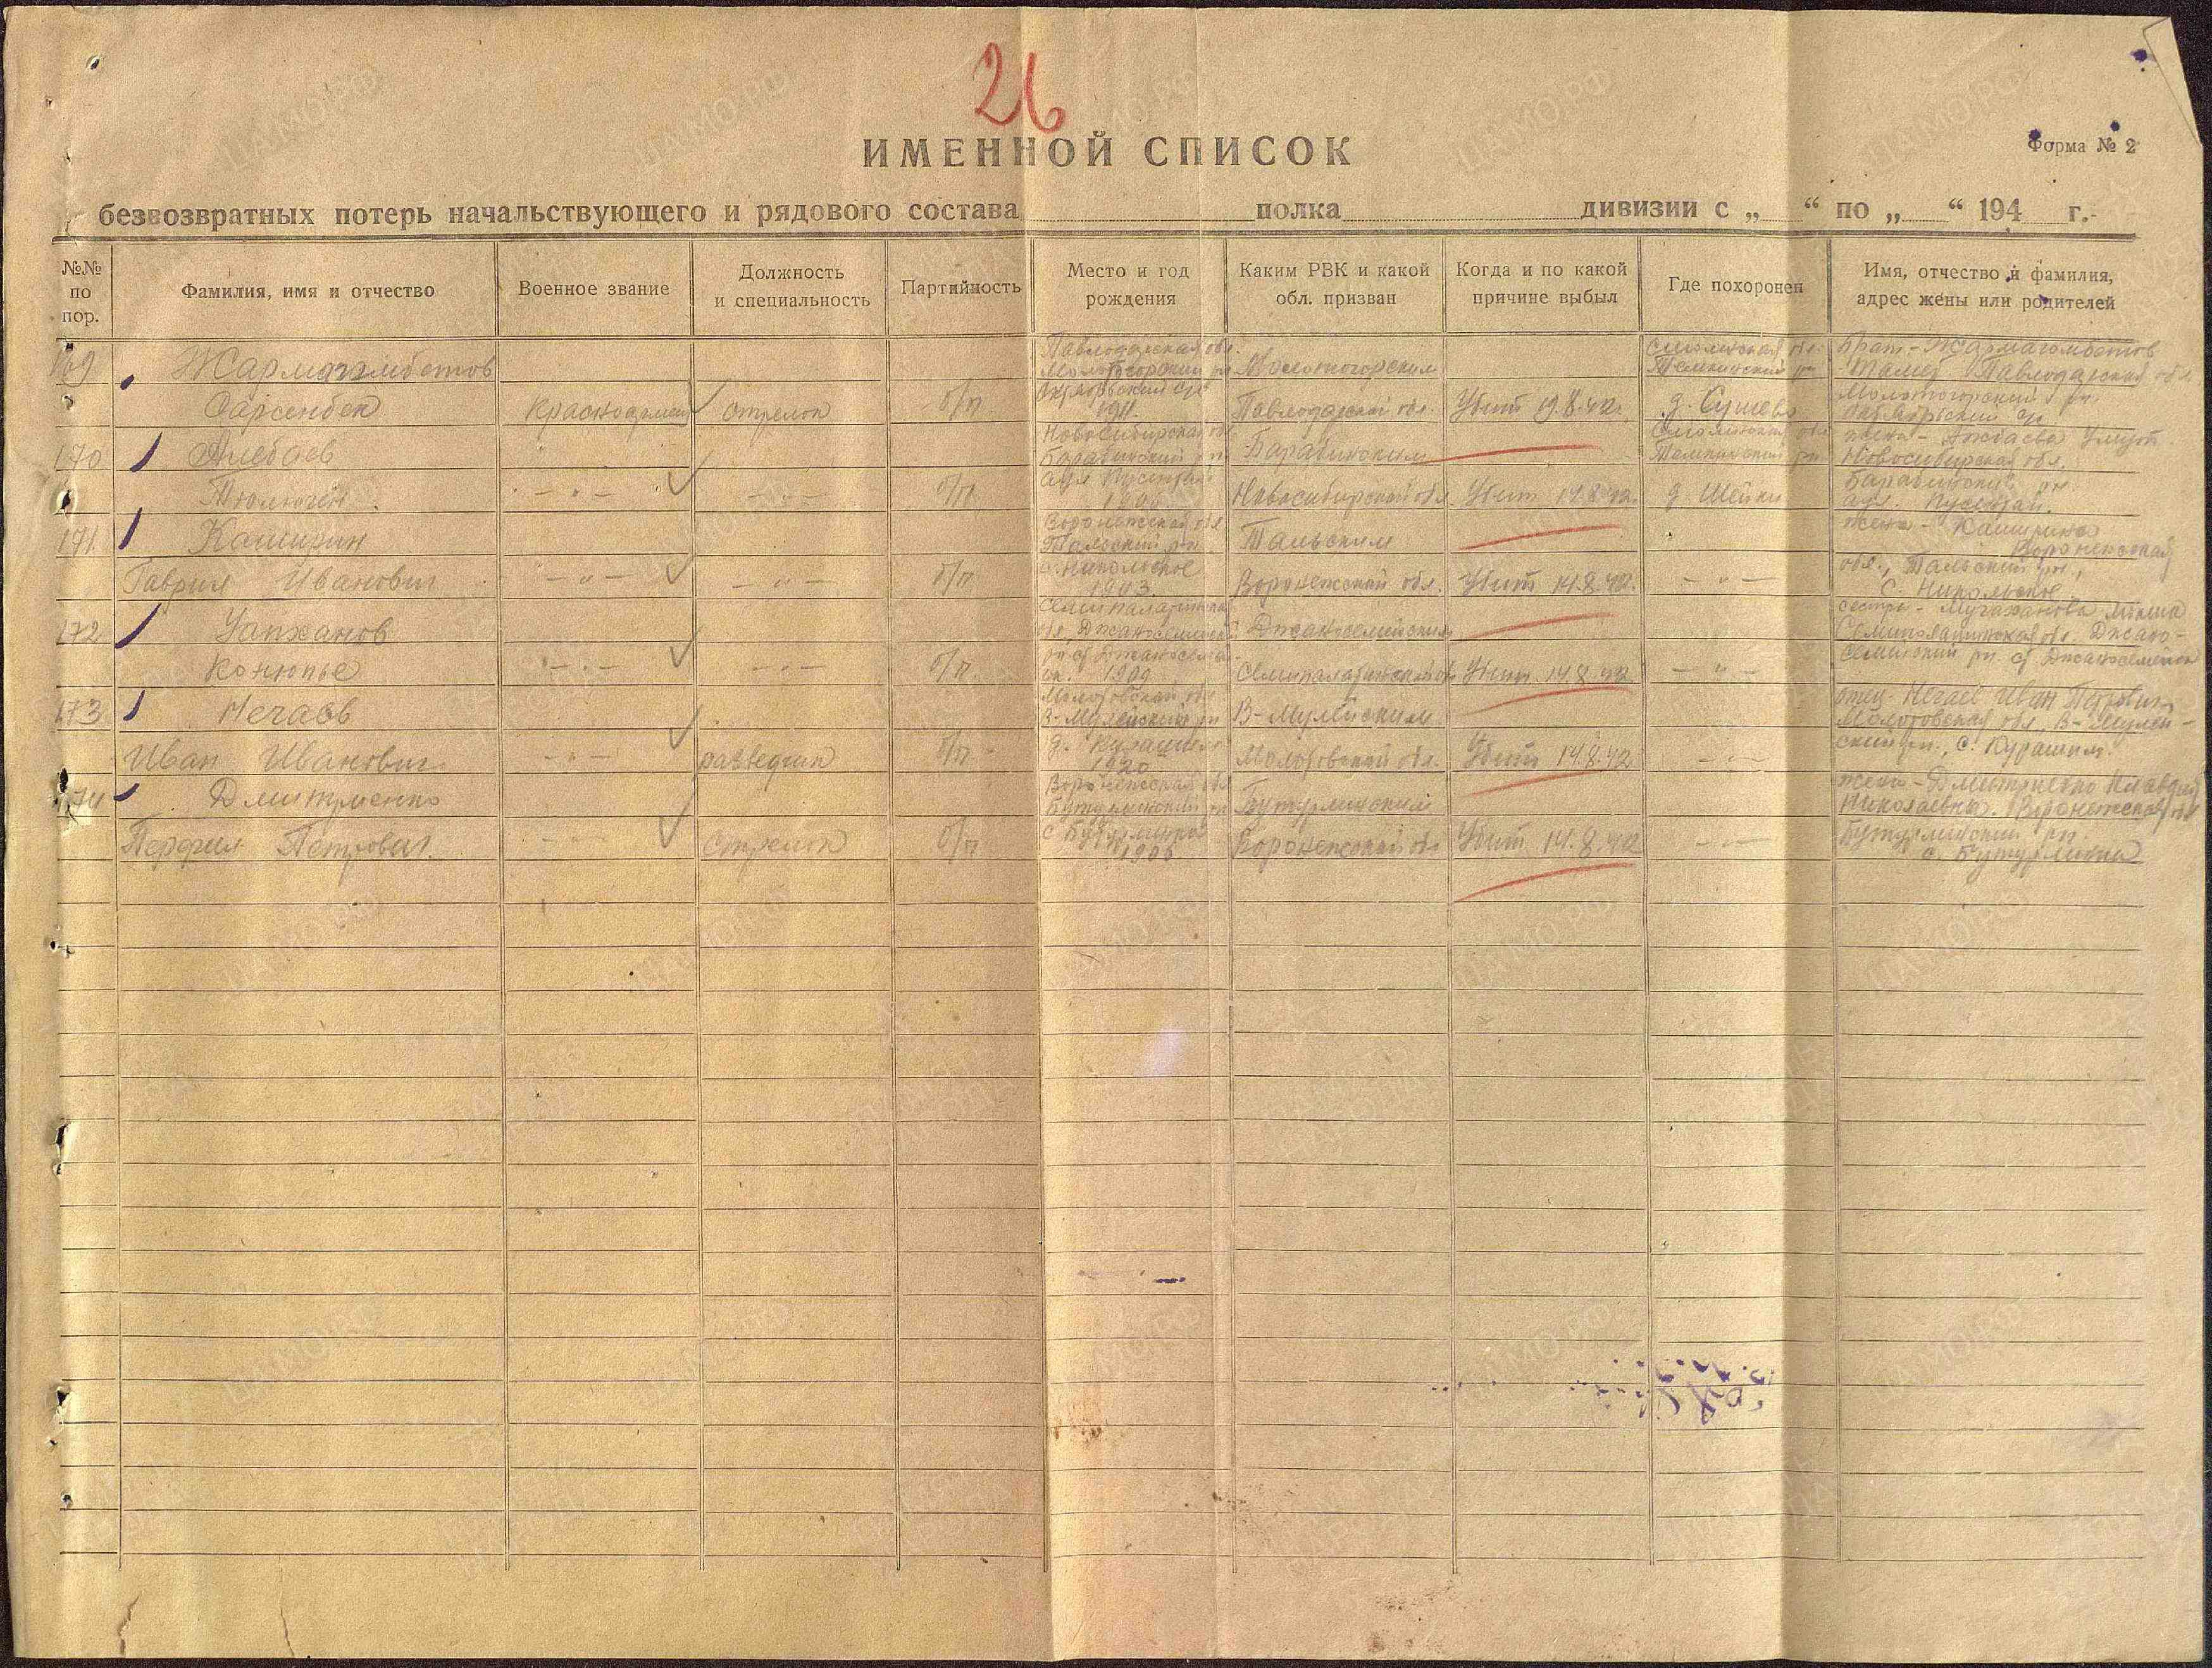 26
ИМЕННОЙ СПИСОК
Форма № 2
безвозвратных потерь начальствующего и рядового состава полка дивизии с „ “ по „ “ 194 г.
№№ по пор.
Фамилия, имя и отчество
Военное звание
Должность и специальность
Партийность
Место и год рождения
Каким РВК и какой обл. призван
Когда и по какой причине выбыл
Где похоронен
Имя, отчество и фамилия, адрес жены или родителей
169
Жармагамбетов
Сарсенбек
красноармеец
стрелок
б/п
Павлодарская обл.
1911
Павлодарской обл.
Убит 19.8.42
Смоленская обл.
Темкинский рн
д. Сушево
Брат - Жармагамбетов
Павлодарская обл.
170
Тюлюген
- " -
- " -
б/п
Новосибирская обл.
Барабинский рн
1906
Барабинским
Новосибирской обл.
Убит 14.8.42
Смоленская обл.
Темкинский рн
д. Шейки
жена -
Новосибирская обл.
Барабинский рн.
171
Каширин
Гаврил Иванович
- " -
- " -
б/п
Воронежская обл.
Тальский рн
с. Никольское
1903
Тальским
Воронежской обл.
Убит 14.8.42
- " -
жена - Каширина
Воронежская
обл., Тальский рн,
с. Никольское
172
Уапжанов
- " -
- " -
б/п
1909
Джаносемейским
Семипалатинской обл
Убит 14.8.42
- " -
сестра -
Семипалатинская обл. Джано-
семейский рн.
173
Нечаев
Иван Иванович
- " -
разведчик
б/п
Молотовская обл
В-Муллинский рн
1920
В-Муллинским
Молотовской обл.
Убит 14.8.42
- " -
отец - Нечаев Иван Петрович
Молотовская обл., В-Муллин-
ский рн., с. Курашим.
174
Дмитриенко
Перфил Петрович
- " -
стрелок
б/п
Воронежская обл
Бутурлинский рн
с Бутурлиновка
1906
Бутурлинским
Воронежской обл
Убит 14.8.42
- " -
жена - Дмитриенко Клавдия
Николаевна. Воронежская обл
Бутурлинский рн.
с. Бутурлиновка